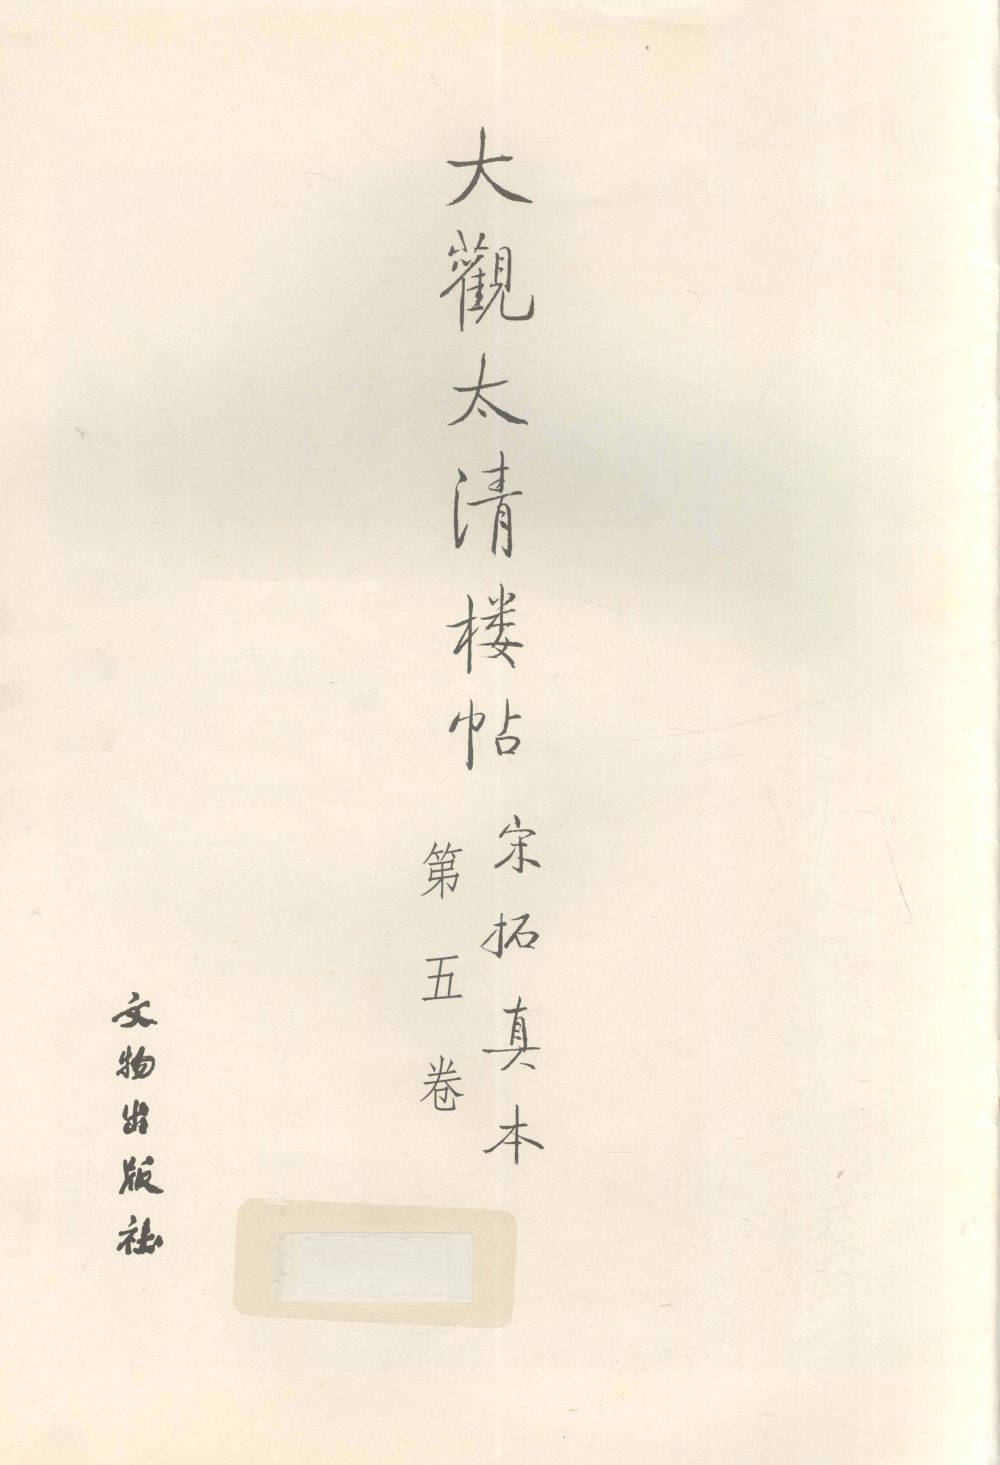 大觀太清楼帖
宋拓真本
第五卷
文物出版社